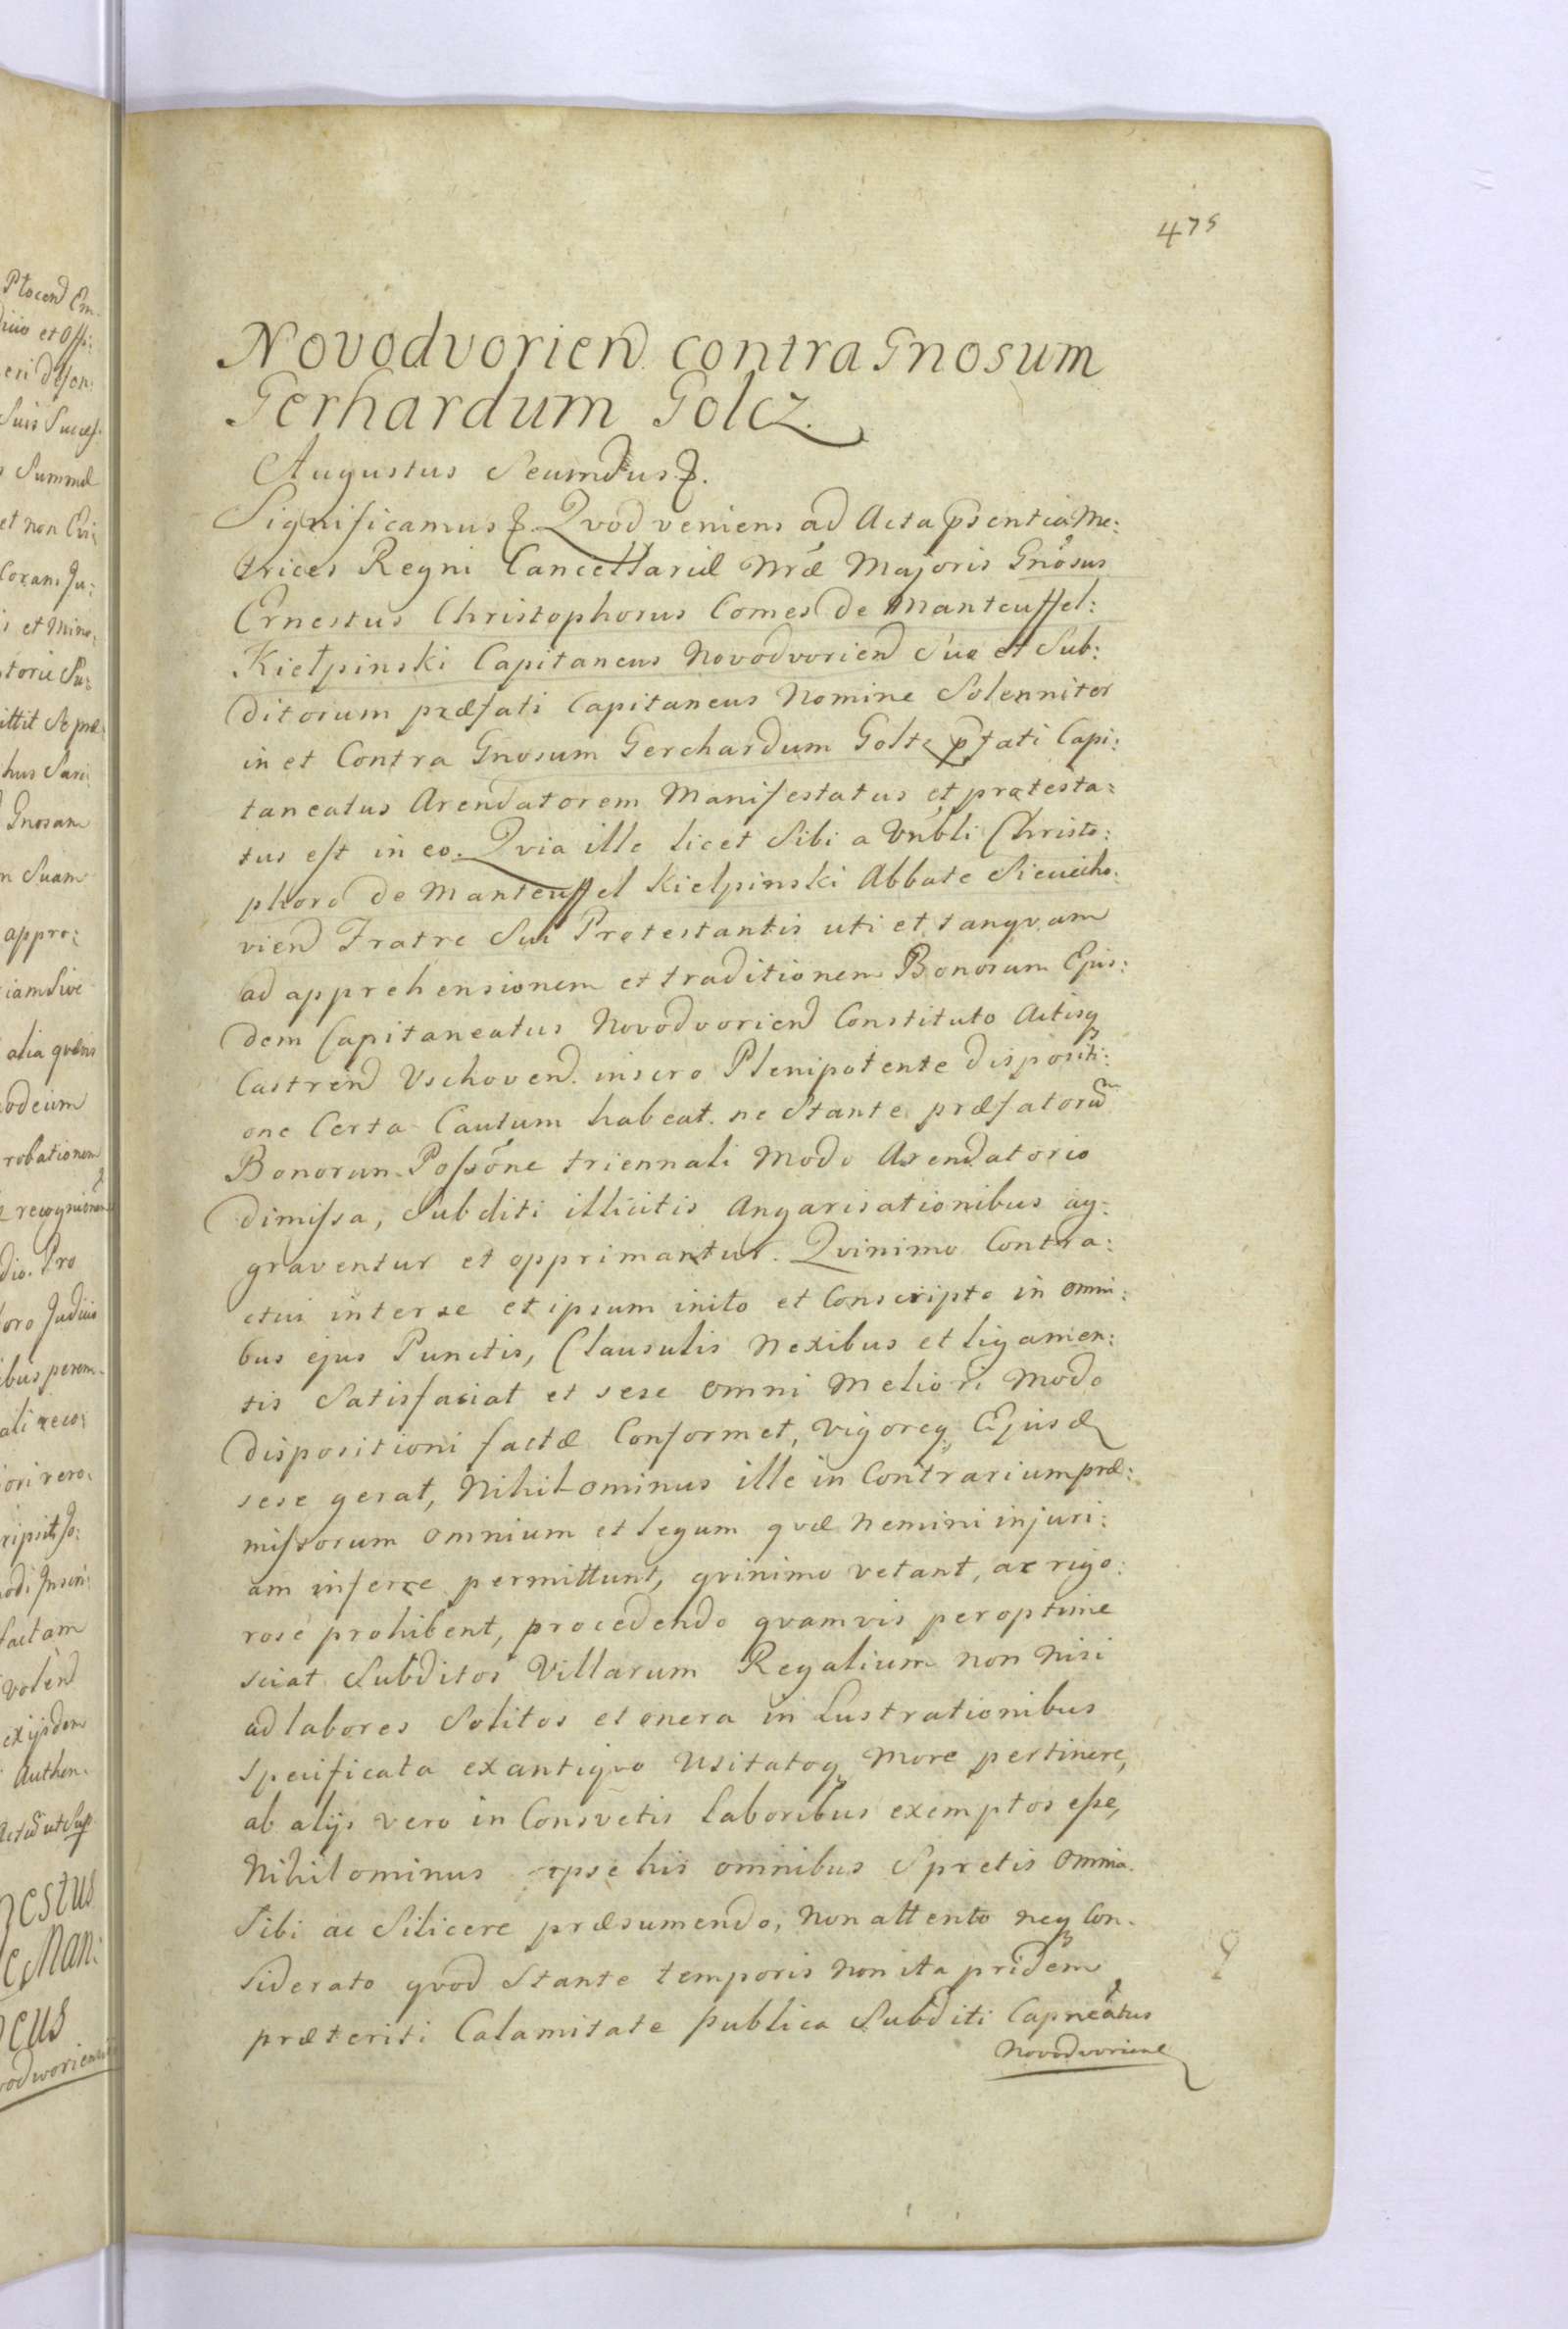 475
Novodvorien contra Gnosum
Gerhardum Golcz.
Augustus Secundus
Significamus Qvod veniens ad Acta psentia Me:
trices Regni Cancellariæ Nræ Majoris Gnosus
Ernestus Christophorus Comes de Manteuffel:
Kiełpinski Capitaneus Novodvorien Suo et Sub:
ditorum præfati Capitaneus Nomine Solenniter
in et Contra Gnosum Gerchardum Goltz pfati Capi:
taneatus Arendatorem Manifestatus et protesta:
tus est in eo. Qvia ille licet Sibi a Vnbli Christo:
phoro de Manteuffel Kielpinski Abbate Sieciecho:
vien Fratre Sui Protestantis uti et tanqvam
ad apprehensionem et traditionem Bonorum Ejus:
dem Capitaneatus Novodvorien Constituto Actisq
Castren Vschoven. insero Plenipotente dispositi:
one Certa Cautum habeat. ne Stante præfatorũ
Bonorum Possõne triennali Modo Arendatorio
dimissa, Subditi illicitis Angarisationibus ag:
graventur et opprimantur. Qvinimo Contra:
ctui inter se et ipsum inito et Conscripto in omni:
bus ejus Punctis, Clausulis Nexibus et ligamen:
tis Satisfaciat et sese omni Meliori Modo
dispositioni factæ Conformet, vigoreq Ejusd
sese gerat, Nihilominus ille in Contrarium præ:
missorum omnium et legum qvæ Nemini injuri:
am inferre permittunt, qvinimo vetant, ac rigo:
rose prohibent, procedendo qvamvis peroptime
sciat Subditos Villarum Regalium non Nisi
ad labores Solitos et onera in Lustrationibus
specificata ex antiqvo Usitatoq More pertinere,
ab alijs vero in Consvetis Laboribus exemptos esse,
Nihilominus ipse his omnibus Spretis omnia
Sibi ac Silicere præsumendo, Non attento neq Con.
siderato qvod Stante temporis non ita pridem
præteriti Calamitate publica Subditi Capneatus
Novodvorien